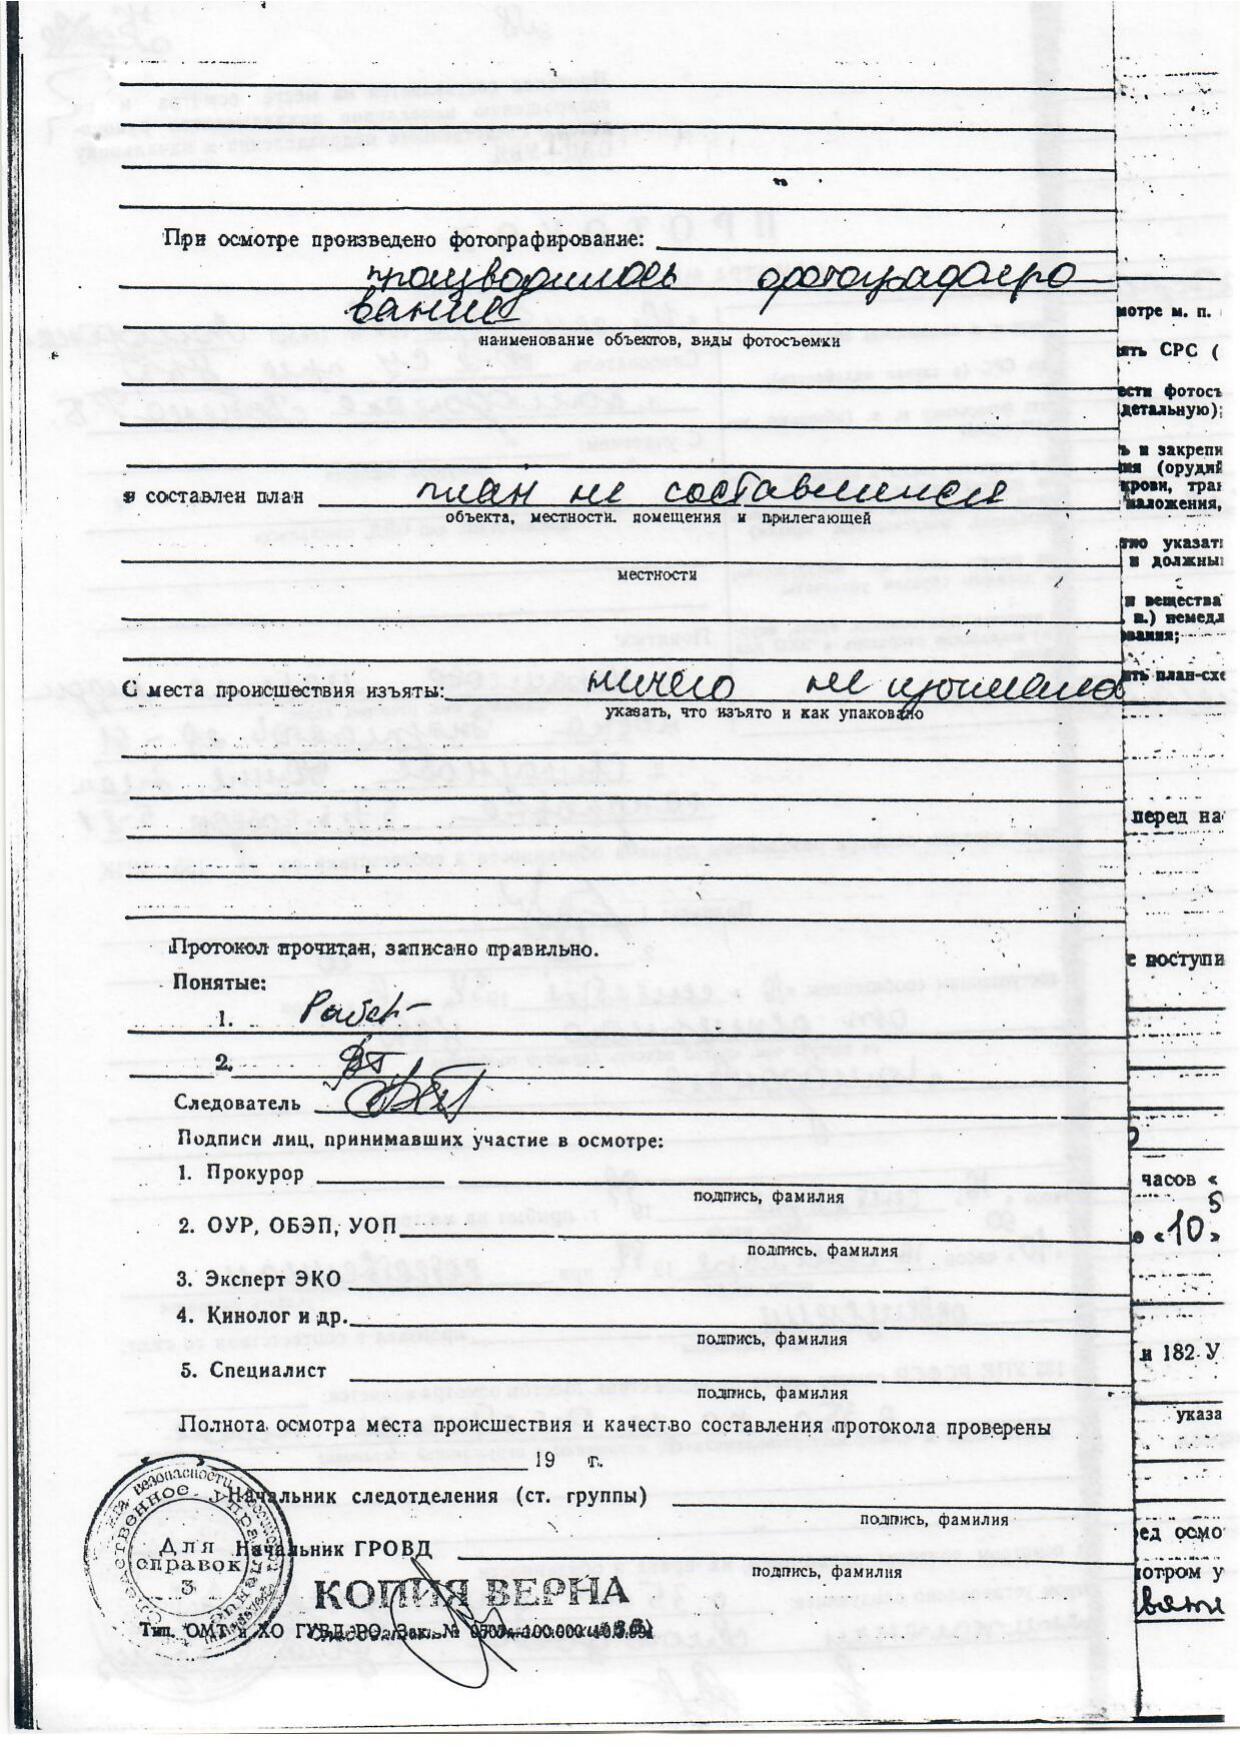 При осмотре произведено фотографирование:
производилось фотографиро
вание
наименование объектов, виды фотосъемки
и составлен план план не составлялся
объекта, местности, помещения и прилегающей
местности
С места происшествия изъяты: ничего не изымалось
указать, что изъято и как упаковано
Протокол прочитан, записано правильно.
Понятые:
1.
2.
Следователь
Подписи лиц, принимавших участие в осмотре:
1. Прокурор
подпись, фамилия
2. ОУР, ОБЭП, УОП
подпись, фамилия
3. Эксперт ЭКО
4. Кинолог и др.
подпись, фамилия
5. Специалист
подпись, фамилия
Полнота осмотра места происшествия и качество составления протокола проверены
19 г.
Начальник следотделения (ст. группы)
подпись, фамилия
Начальник ГРОВД
подпись, фамилия
Для
справок
3
КОПИЯ ВЕРНА
Тип. ОМТ и ХО ГУВД РО, Зак. №
мотре м. п.
ять СРС (
ести фотось
детальную);
ь и закрепи
ия (орудий
крови, тран
наложения,
тно указать
и должны
и вещества
п.) немедл
ования;
ить план-схе
перед на
е поступи
часов «
5
о «10»
и 182 У
указа
ред осмо
отром у